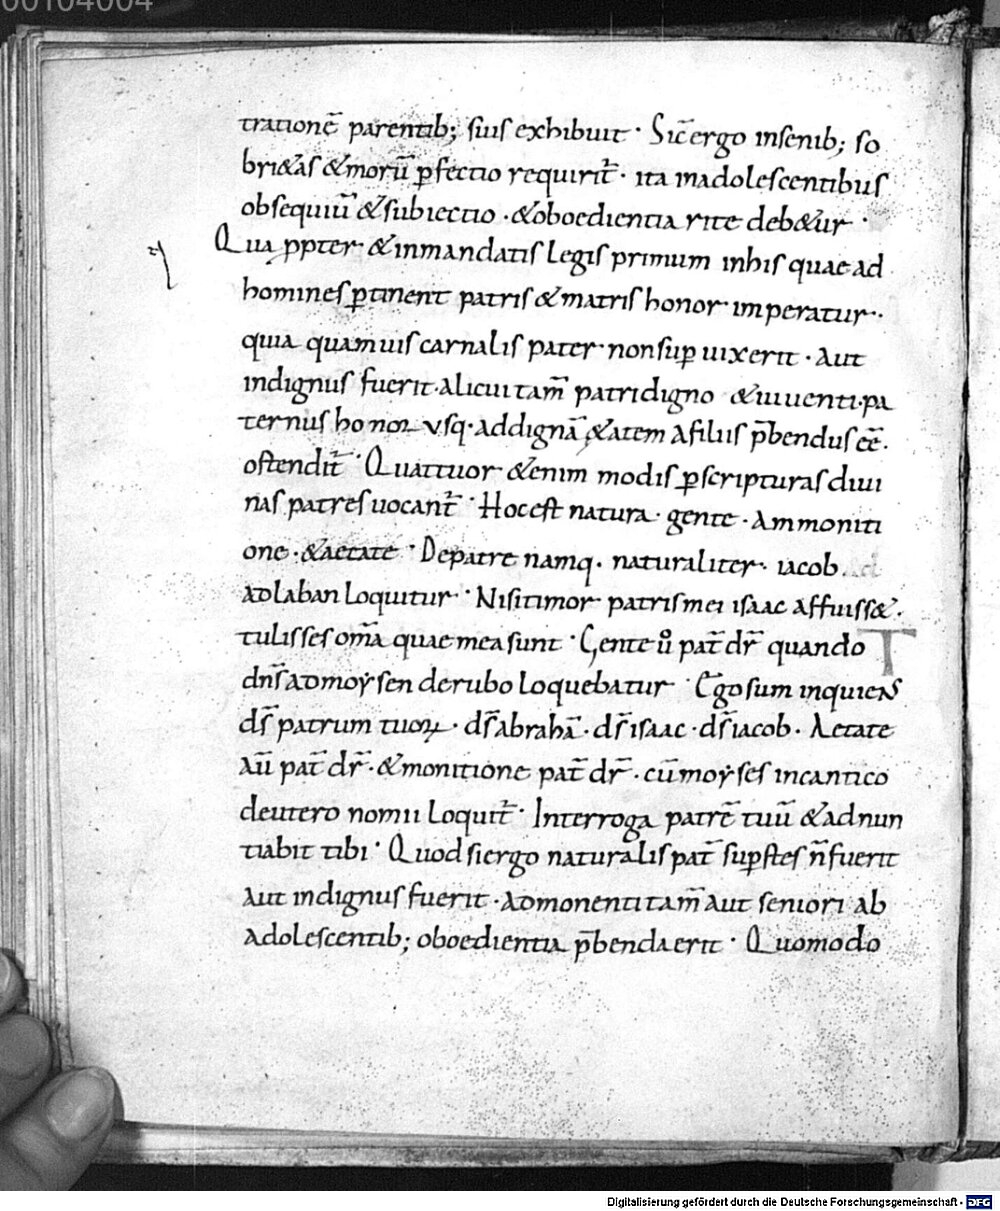 00104004
trationē parentib; suis exhibuit · Sic̄ ergo insenib; so
bri&as &morū ꝑfectio requirit̄ · ita inadolescentibus
obsequiū &subiectio · &oboedientia rite deb&ur ·
Qua ꝓpter &inmandatis legis primum inhis quae ad
homines ꝑtinent patris &matris honor imperatur ·
quia quamuis carnalis pater non suꝑ uixerit · aut
indignus fuerit · alicui tam̄ patri digno &uiuenti · pa
ternus honor usq· ad dignā &atem afiliis p̄bendus eē ·
ostendit̄ · Quattuor &enim modis ꝑ scripturas diui
nas patres uocant̄ · Hoc est natura · gente · ammoniti
one · &aetate · De patre namq· naturaliter · iacob
ad laban loquitur · Nisi timor patris mei isaac affuiss& ·
tulisses om̄a quae mea sunt · Gente ů pat̄ dr̄ quando
T
dn̄s ad moẏsen de rubo loquebatur · Ego sum inquiens
ds̄ patrum tuoꝝ · ds̄ abrahā · ds̄ isaac · ds̄ iacob · Aetate
aū pat̄ dr̄ · &monitione pat̄ dr̄ · cū moẏses in cantico
deutero nomii loquit̄ · Interroga patrē tuū &adnun
tiabit tibi · Quod si ergo naturalis pat̄ suꝑstes n̄ fuerit
aut indignus fuerit · admonenti tam̄ aut seniori ab
adolescentib; oboedientia p̄benda erit · Quomodo
Digitalisierung gefördert durch die Deutsche Forschungsgemeinschaft - DFG